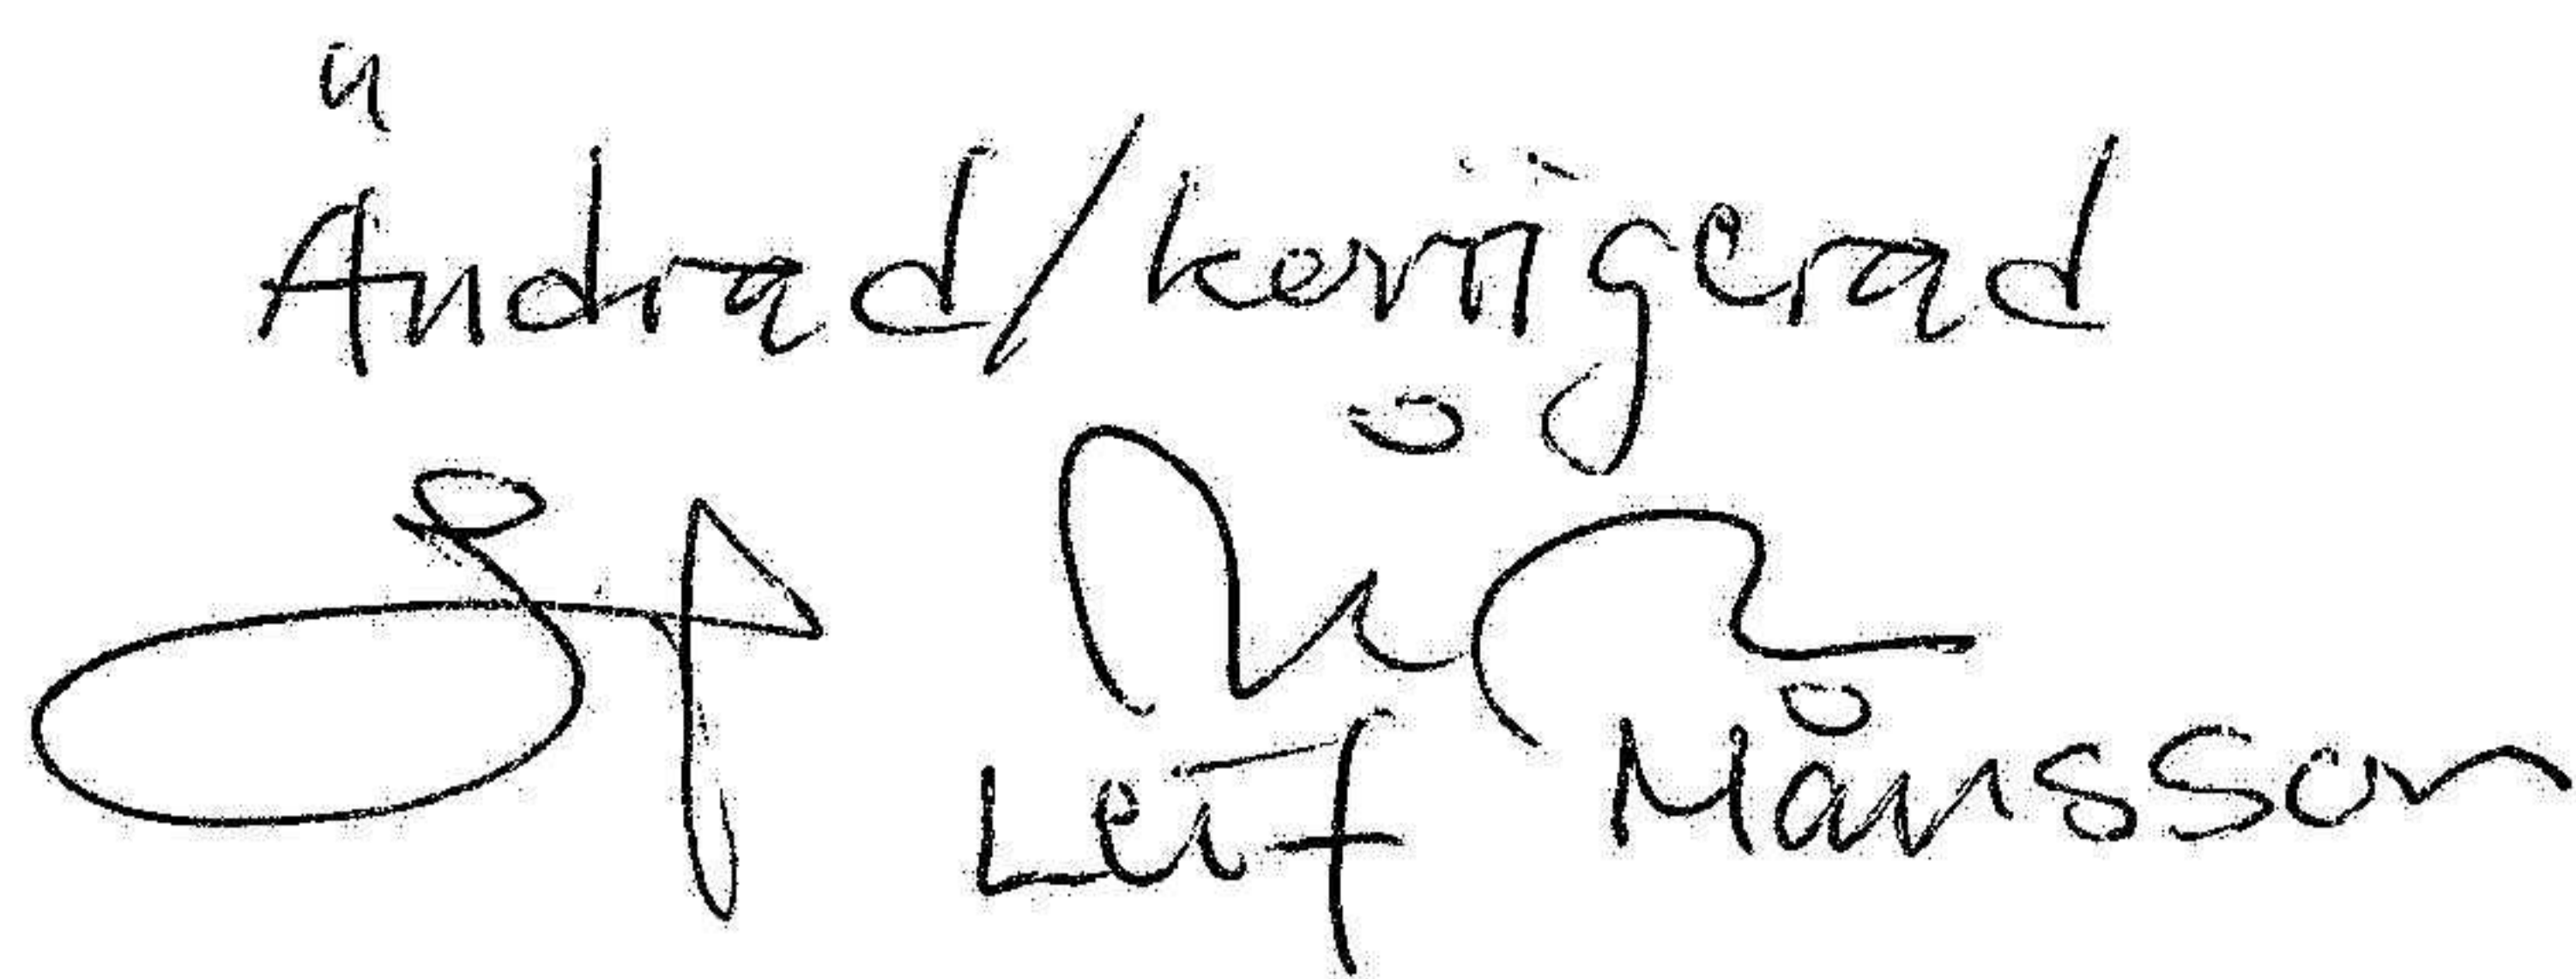 Ändrad/korrigerad
Leif Månsson